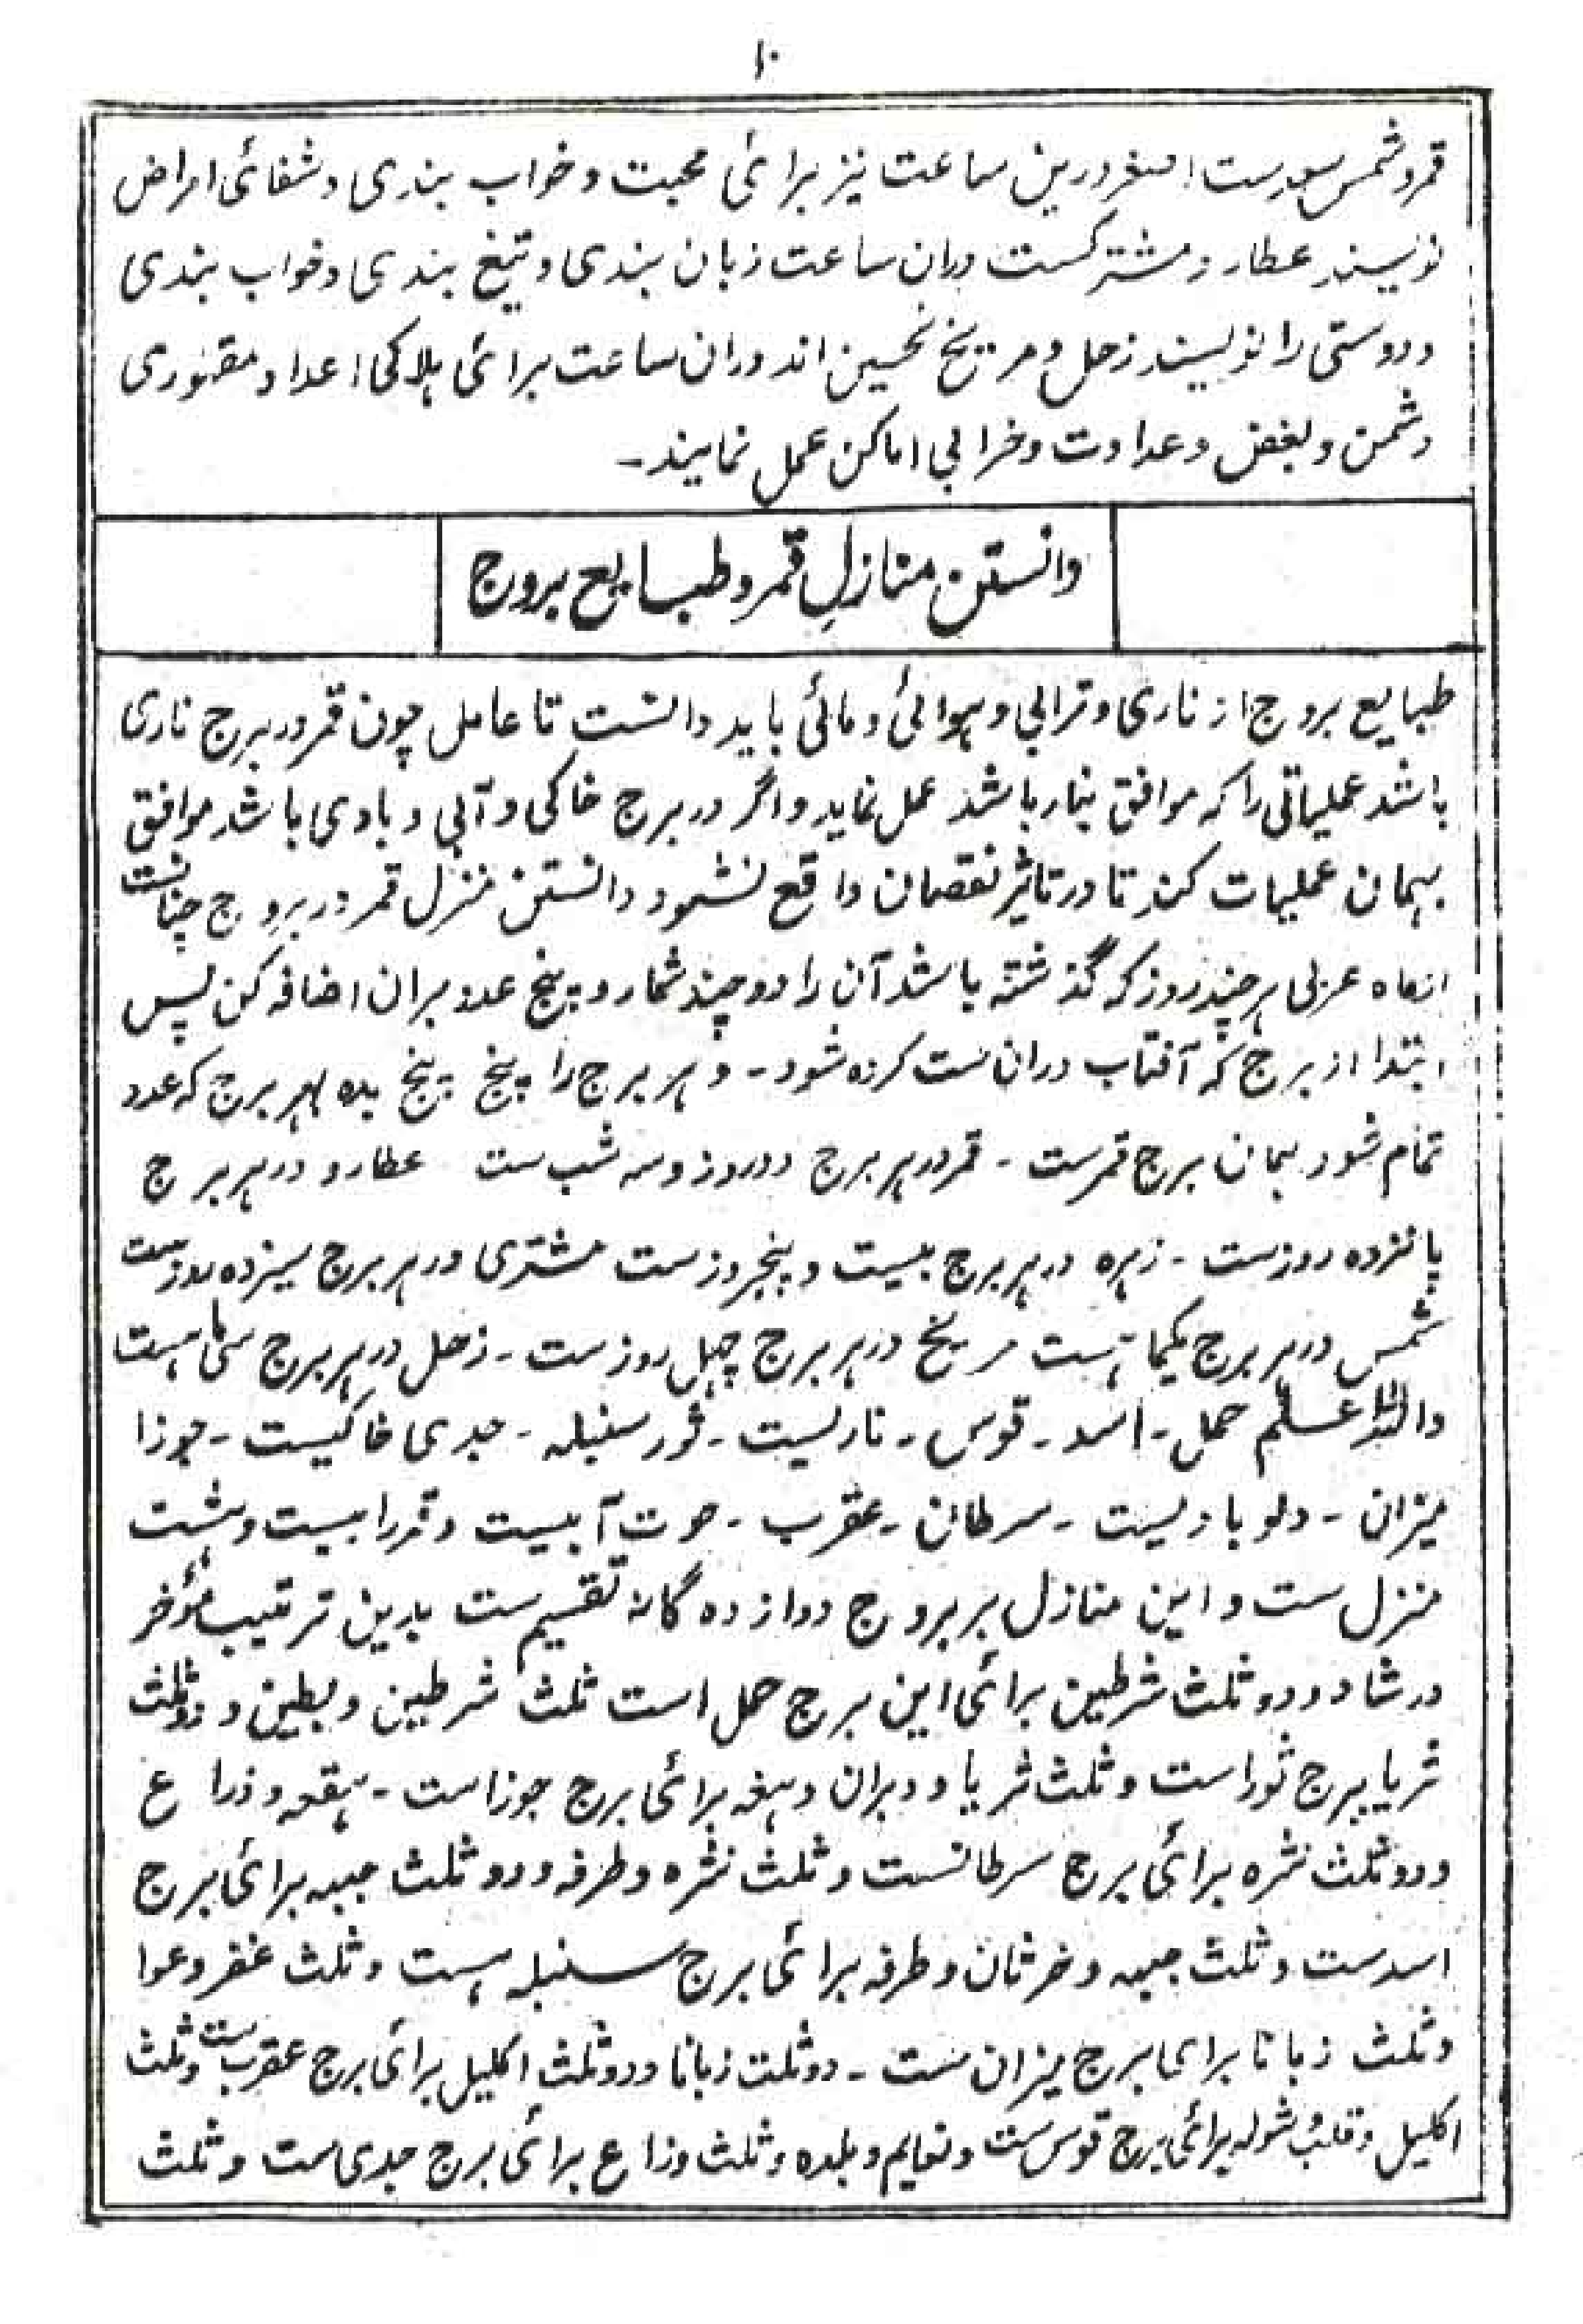 ۱۰
قمر و شمس سعدست درین ساعت نیز برائ محبت و خواب بندی و شفائی امراض
نویسند عطارد مشترکست دران ساعت زبان بندی و تیغ بندی و خواب بندی
و دوستی را نویسند زحل و مریخ نحسین اند دران ساعت برائ ہلاکی اعدا و مقهوری
دشمن و بغض و عداوت و خرابی اماکن عمل نمایند۔
دانستن منازلِ قمر و طبایع بروج
طبایع بروج از ناری و ترابی و ہوائی و مائی باید دانست تا عامل چون قمر در برج ناری
باشد عملیاتی را کہ موافق بنار باشد عمل نماید و اگر در برج خاکی و آبی و بادی باشد موافق
بہمان عملیات کند تا در تاثیر نقصان واقع نشود دانستن منزل قمر در بروج چنانست
از ماہ عربی ہر چند روز کہ گذشتہ باشد آن را دو چند شمار و پنج عدد بران اضافہ کن پس
ابتدا از برج کہ آفتاب دران ست کردہ شود۔ و ہر برج را پنج پنج بدہ بہر برج کہ عدد
تمام شود ہمان برج قمرست ۔ قمر در ہر برج دو روز و سہ شب ست عطارد در ہر برج
پانزدہ روزست ۔ زہرہ در ہر برج بیست و پنجروزست مشتری در ہر برج سیزدہ ماہست
شمس در ہر برج یکماہست مریخ در ہر برج چہل روزست ۔ زحل در ہر برج سی ماہست
واللہ اعلم حمل ۔ اسد ۔ قوس ۔ ناریست ۔ ثور سنبلہ ۔ جدی خاکیست ۔ جوزا
میزان ۔ دلو بادیست ۔ سرطان ۔ عقرب ۔ حوت آبیست و قمر را بیست و ہشت
منزل ست و این منازل بر بروج دوازدہ گانہ تقسیم ست بدین ترتیب مؤخر
و رشا و دو ثلث شرطین برائ این برج حمل است ثلث شرطین و بطین و دو ثلث
ثریا برج ثور است و ثلث ثریا و دبران و ہقعہ برائ برج جوزاست ۔ ہقعہ و ذراع
و دو ثلث نثرہ برائ برج سرطانست و ثلث نثرہ و طرفہ و دو ثلث جبہہ برائ برج
اسدست و ثلث جبہہ و خرثان و طرفہ برائ برج سنبلہ ہست و ثلث غفر و عوا
و ثلث زبانا برای برج میزان ست ۔ دو ثلث زبانا و دو ثلث اکلیل برائ برج عقرب ست و ثلث
اکلیل و قلب و شولہ برائ برج قوس ست و نعایم و بلدہ و ثلث ذراع برائ برج جدی ست و ثلث